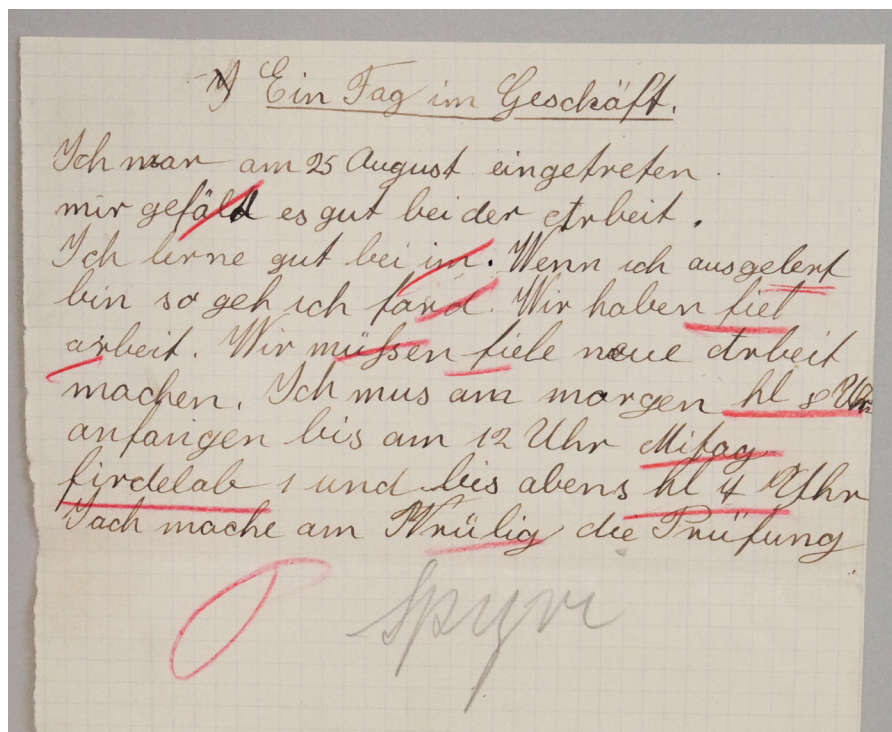 Ein Tag im Geschäft.
Ich war am 25 August eingetreten
mir gefäld es gut bei der Arbeit.
Ich lerne gut bei im. Wenn ich ausgelert
bin so geh ich fard. Wir haben fiel
arbeit. Wir müssen fiele neue Arbeit
machen. Ich mus am morgen hl 8 Uhr
anfangen bis am 12 Uhr Mitag
firdelab 1 und bis abens hl 4 Uhr
Ich mache am die Prüfung
Spyri